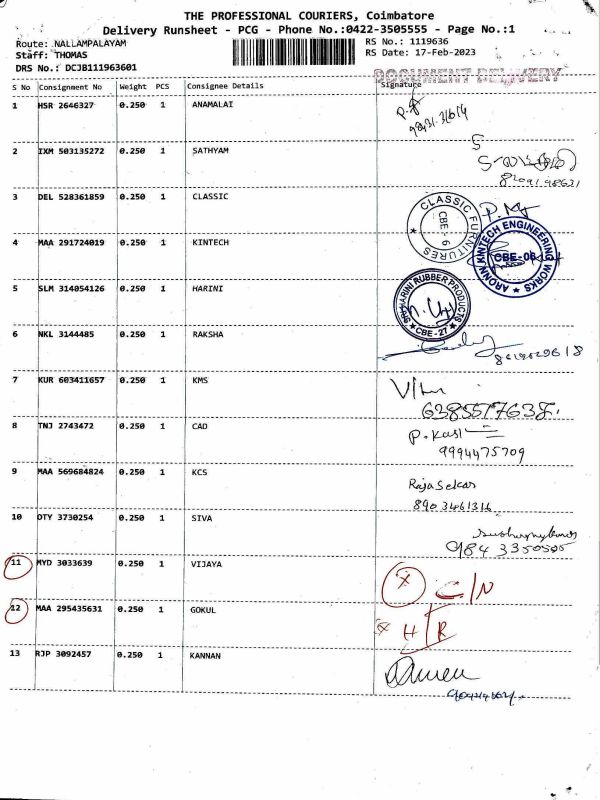 THE PROFESSIONAL COURIERS, Coimbatore
Delivery Runsheet - PCG - Phone No.:0422-3505555 - Page No.:1
Route: NALLAMPALAYAM
RS No.: 1119636
Staff: THOMAS
RS Date: 17-Feb-2023
DRS No.: DCJB111963601
DOCUMENT DELIVERY
S No Consignment No Weight PCS Consignee Details Signature
1 HSR 2646327 0.250 1 ANAMALAI
2 IXM 503135272 0.250 1 SATHYAM
3 DEL 528361859 0.250 1 CLASSIC
CLASSIC FURNITURES CBE-6
4 MAA 291724019 0.250 1 KINTECH
ARONN KINTECH ENGINEERING WORKS CBE-06
5 SLM 314054126 0.250 1 HARINI
SRI HARINI RUBBER PRODUCTS CBE-27
6 NKL 3144485 0.250 1 RAKSHA
7 KUR 603411657 0.250 1 KMS
8 TNJ 2743472 0.250 1 CAD
9994475709
9 MAA 569684824 0.250 1 KCS
Rajasekar
8903461316
10 OTY 3730254 0.250 1 SIVA
11 MYD 3033639 0.250 1 VIJAYA
C/N
12 MAA 295435631 0.250 1 GOKUL
H/R
13 RJP 3092457 0.250 1 KANNAN